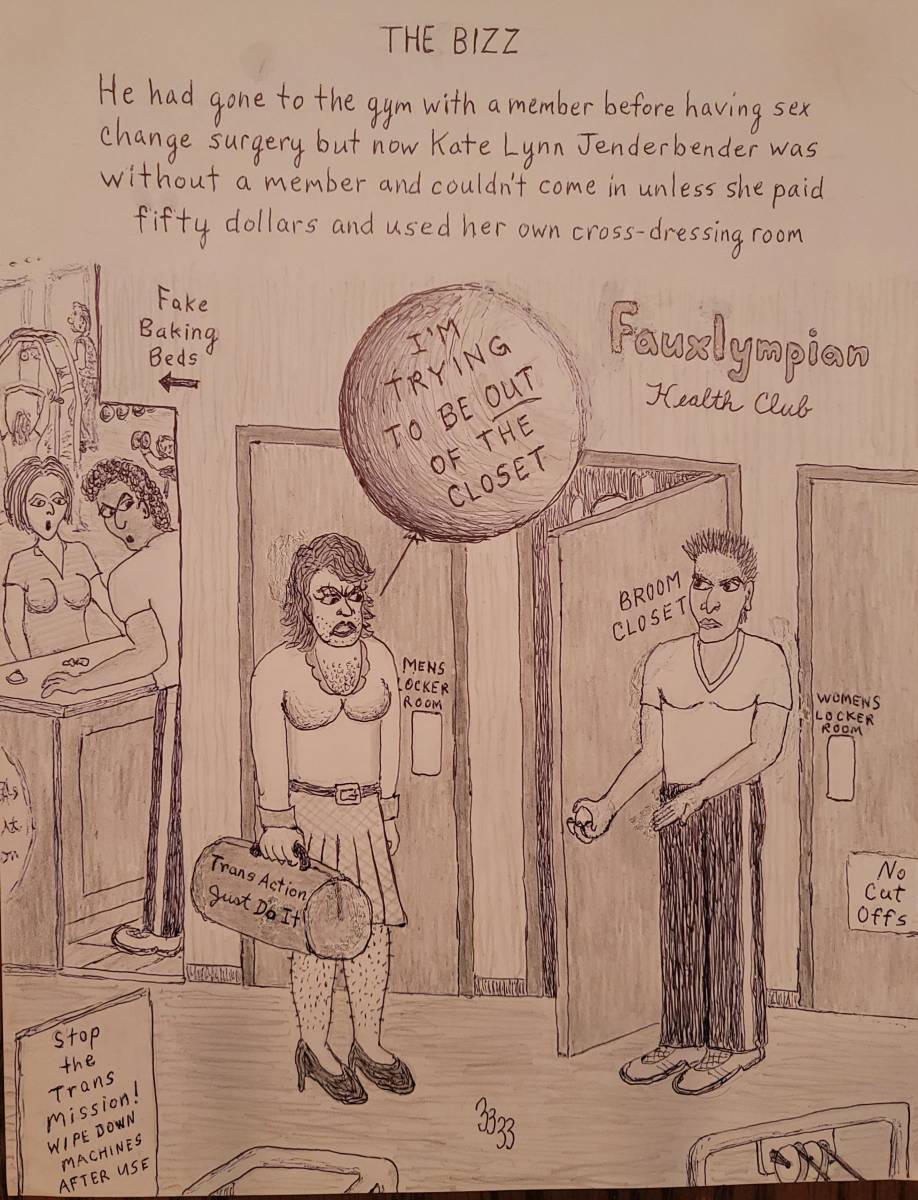 THE BIZZ
He had gone to the gym with a member before having sex
change surgery but now Kate Lynn Jenderbender was
without a member and couldn't come in unless she paid
fifty dollars and used her own cross-dressing room
Fake
Baking
Beds
I'M
TRYING
TO BE OUT
OF THE
CLOSET
Fauxlympian
Health Club
BROOM
CLOSET
MENS
LOCKER
ROOM
WOMENS
LOCKER
ROOM
Trans Action
Just Do It
No
Cut
Offs
Stop
the
Trans
mission!
WIPE DOWN
MACHINES
AFTER USE
3333